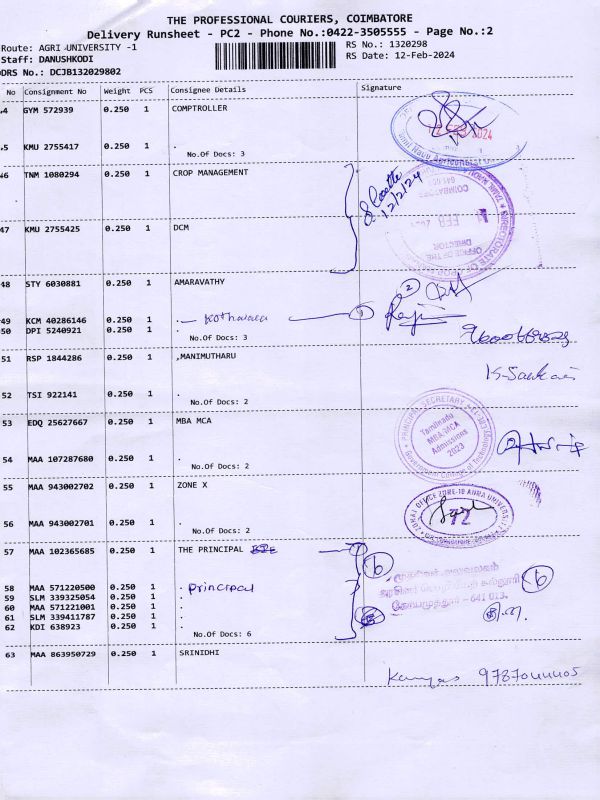 THE PROFESSIONAL COURIERS, COIMBATORE
Delivery Runsheet - PC2 - Phone No.:0422-3505555 - Page No.:2
Route: AGRI UNIVERSITY -1
RS No.: 1320298
Staff: DANUSHKODI
RS Date: 12-Feb-2024
DRS No.: DCJB132029802
No Consignment No Weight PCS Consignee Details Signature
4 GYM 572939 0.250 1 COMPTROLLER
2024
5 KMU 2755417 0.250 1 .
No.Of Docs: 3
46 TNM 1080294 0.250 1 CROP MANAGEMENT
12/2/24
COIMBATORE
FEB
OFFICE OF THE
DIRECTOR
DIRECTORATE OF CROP
47 KMU 2755425 0.250 1 DCM
48 STY 6030881 0.250 1 AMARAVATHY
2
49 KCM 40286146 0.250 1 .
50 DPI 5240921 0.250 1 .
No.Of Docs: 3
51 RSP 1844286 0.250 1 ,MANIMUTHARU
52 TSI 922141 0.250 1 .
No.Of Docs: 2
53 EDQ 25627667 0.250 1 MBA MCA
PRINCIPAL SECRETARY
Tamilnadu
MBA/MCA
Admissions
2023
Government College of Technology
54 MAA 107287680 0.250 1 .
No.Of Docs: 2
55 MAA 943002702 0.250 1 ZONE X
ZONAL OFFICE ZONE-10 ANNA UNIVERSITY
56 MAA 943002701 0.250 1 .
No.Of Docs: 2
57 MAA 102365685 0.250 1 THE PRINCIPAL
6
58 MAA 571220500 0.250 1 . Principal
59 SLM 339325054 0.250 1 .
60 MAA 571221001 0.250 1 .
61 SLM 339411787 0.250 1 .
62 KDI 638923 0.250 1 .
முதல்வர் அலுவலகம்
கோயமுத்தூர் - 641 013.
6
No.Of Docs: 6
63 MAA 863950729 0.250 1 SRINIDHI